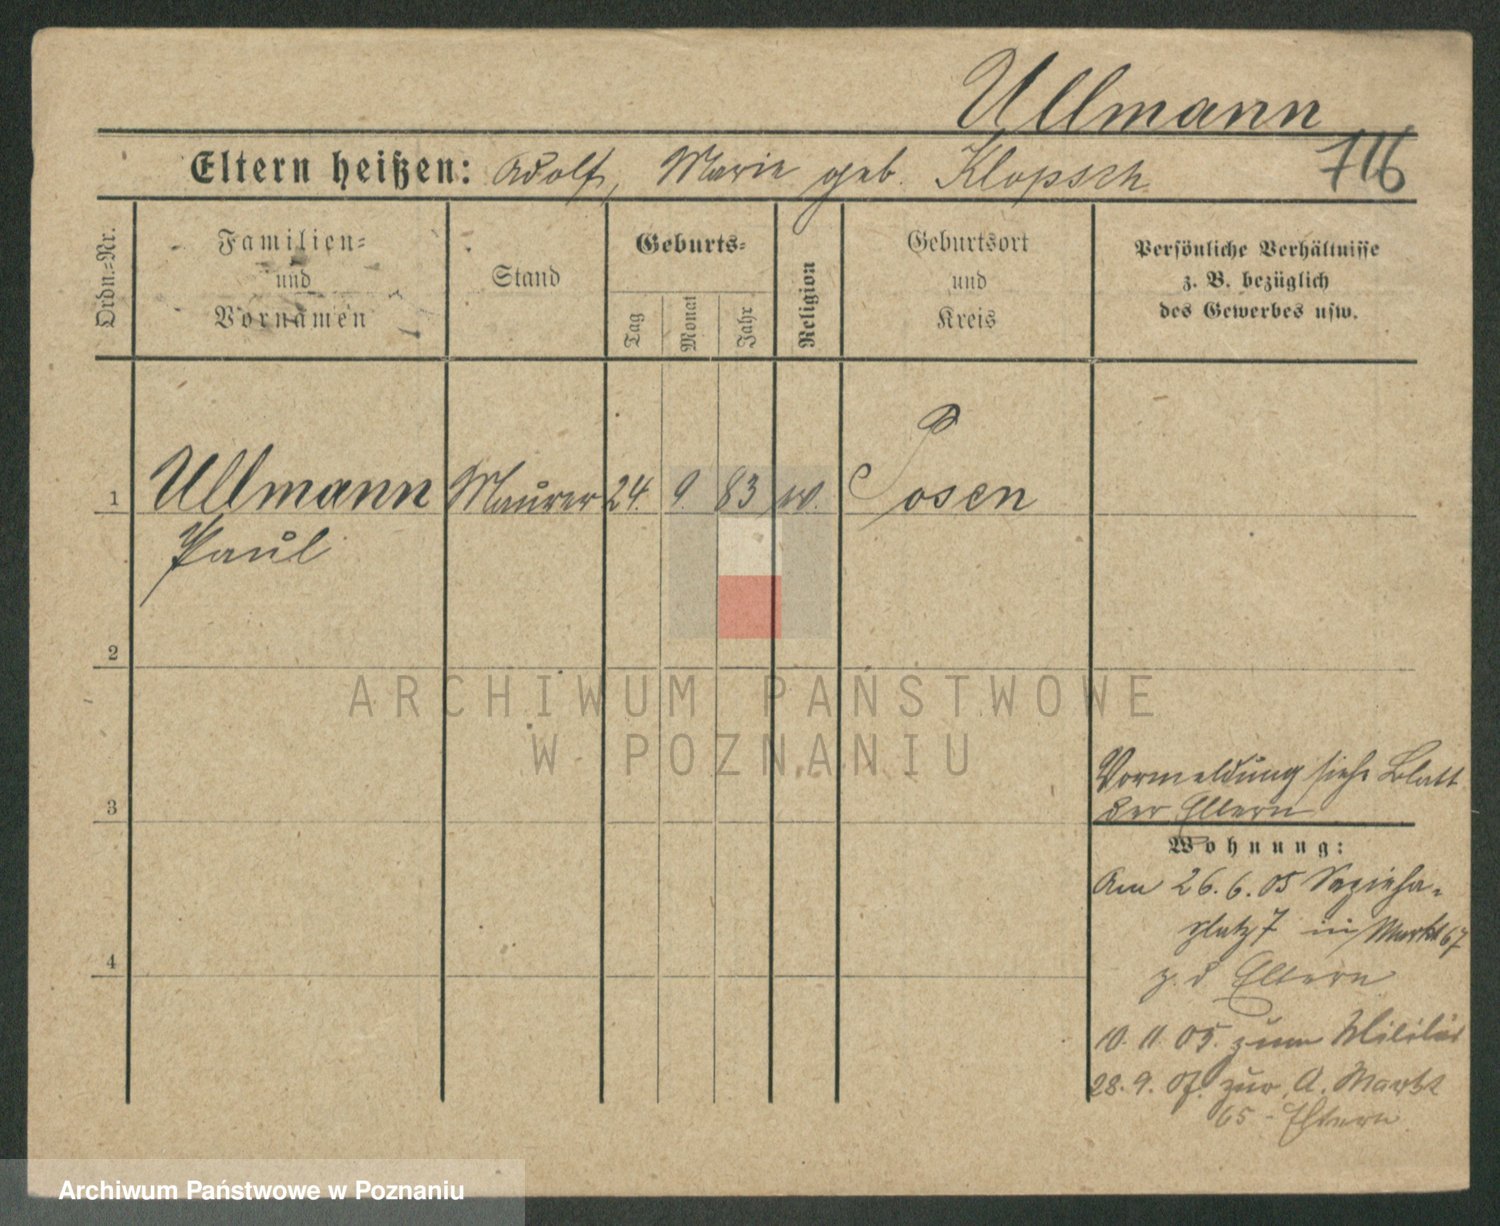 Ullmann
Eltern heißen: Adolf, Marie geb. Klopsch
716
Ordn.=Nr.
Familien=
und
Vornamen
Stand
Geburts=
Tag
Monat
Jahr
Religion
Geburtsort
und
Kreis
Persönliche Verhältnisse
z. B. bezüglich
des Gewerbes usw.
1 Ullmann Maurer 24. 9. 83 Posen
Paul
2
ARCHIWUM PAŃSTWOWE
W POZNANIU
3
4
Vormeldung siehe Blatt
der Eltern
Wohnung:
Am 26. 6. 05 Sapieha=
platz 7 Markt 67
z. d Eltern
10. 11. 05. zum Militär
28. 9. 07. zur. A. Markt
65 - Eltern
Archiwum Państwowe w Poznaniu